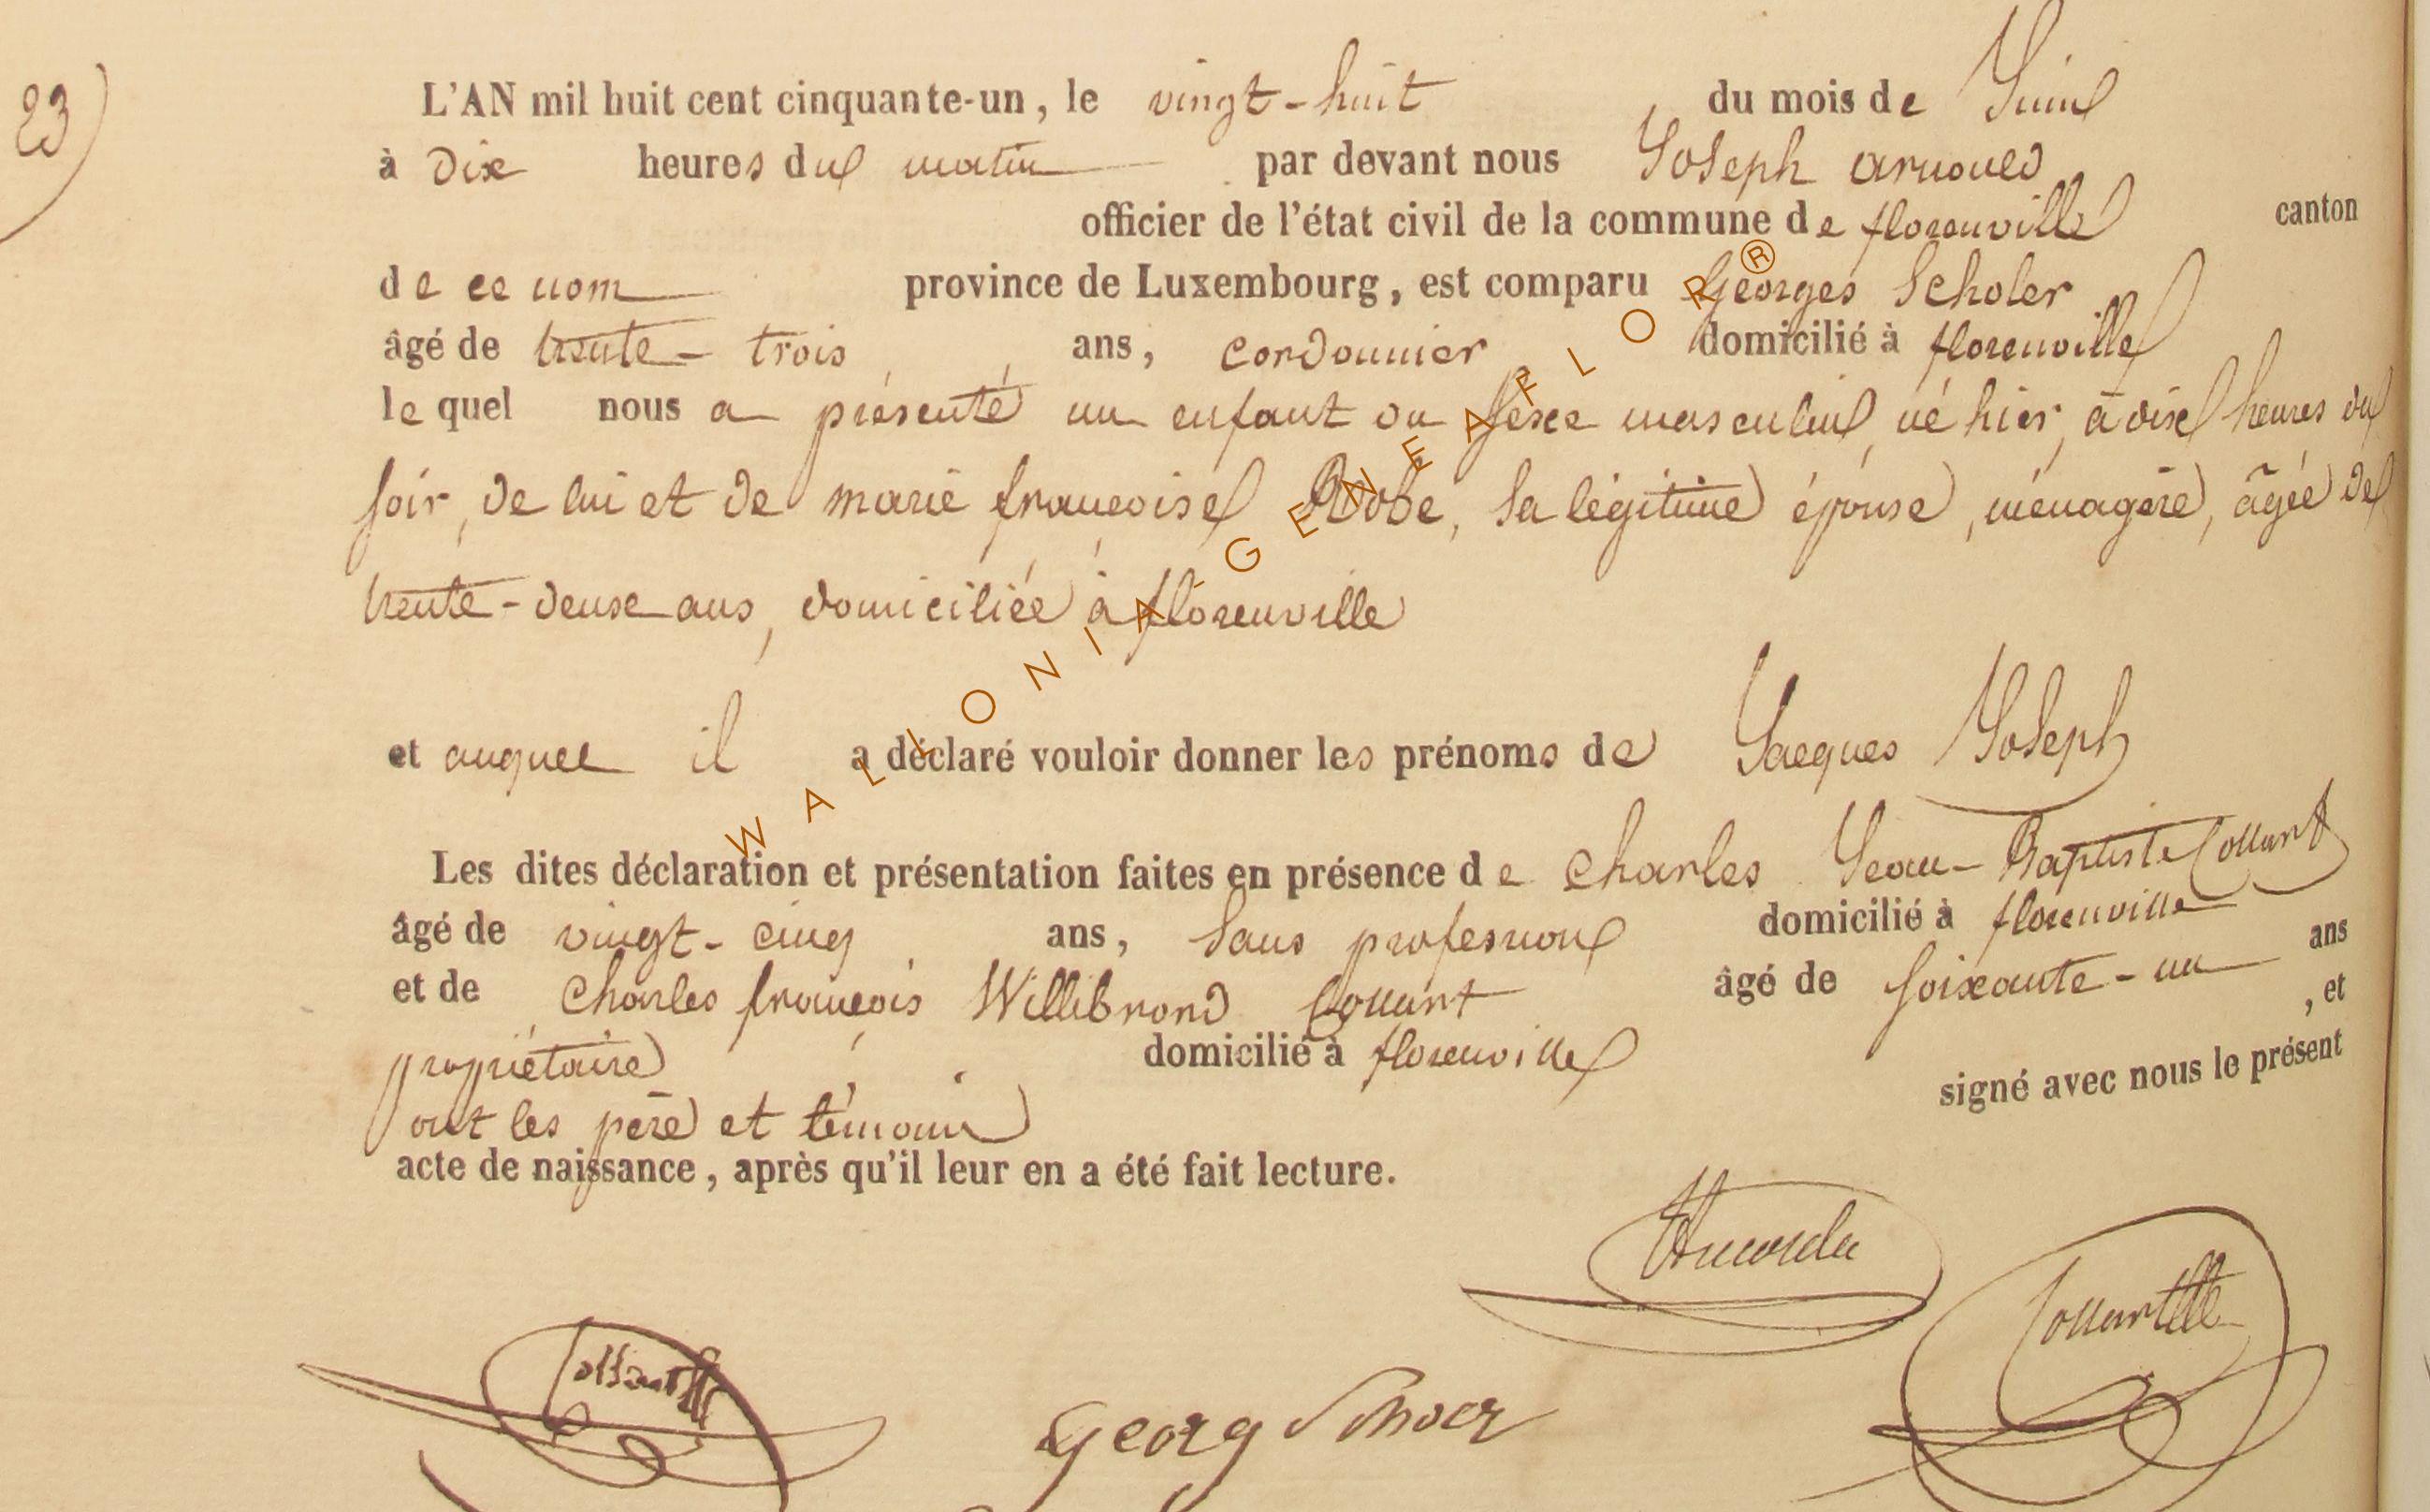 23)
L'AN mil huit cent cinquante-un, le vingt-huit du mois de Juin
à dix heures du matin par devant nous Joseph arnould
officier de l'état civil de la commune de florenville canton
de ce nom province de Luxembourg, est comparu Georges Scholer
âgé de trente-trois ans, cordonnier domicilié à florenville
le quel nous a présenté un enfant du sexe masculin, né hier, à dix heures du
soir, de lui et de marie françoise Robe, sa légitime épouse, ménagère, âgée de
trente-deux ans, domiciliée à florenville
et auquel il a déclaré vouloir donner les prénoms de Jacques Joseph
Les dites déclaration et présentation faites en présence de Charles Jean-Baptiste Collart
âgé de vingt-cinq ans, sans profession domicilié à florenville
et de Charles françois Willibrord Collart âgé de soixante-un ans
propriétaire domicilié à florenville, et
ont les père et témoin signé avec nous le présent
acte de naissance, après qu'il leur en a été fait lecture.
Collart
Georg
Collart
WALLONIA-GENEAFLOR®